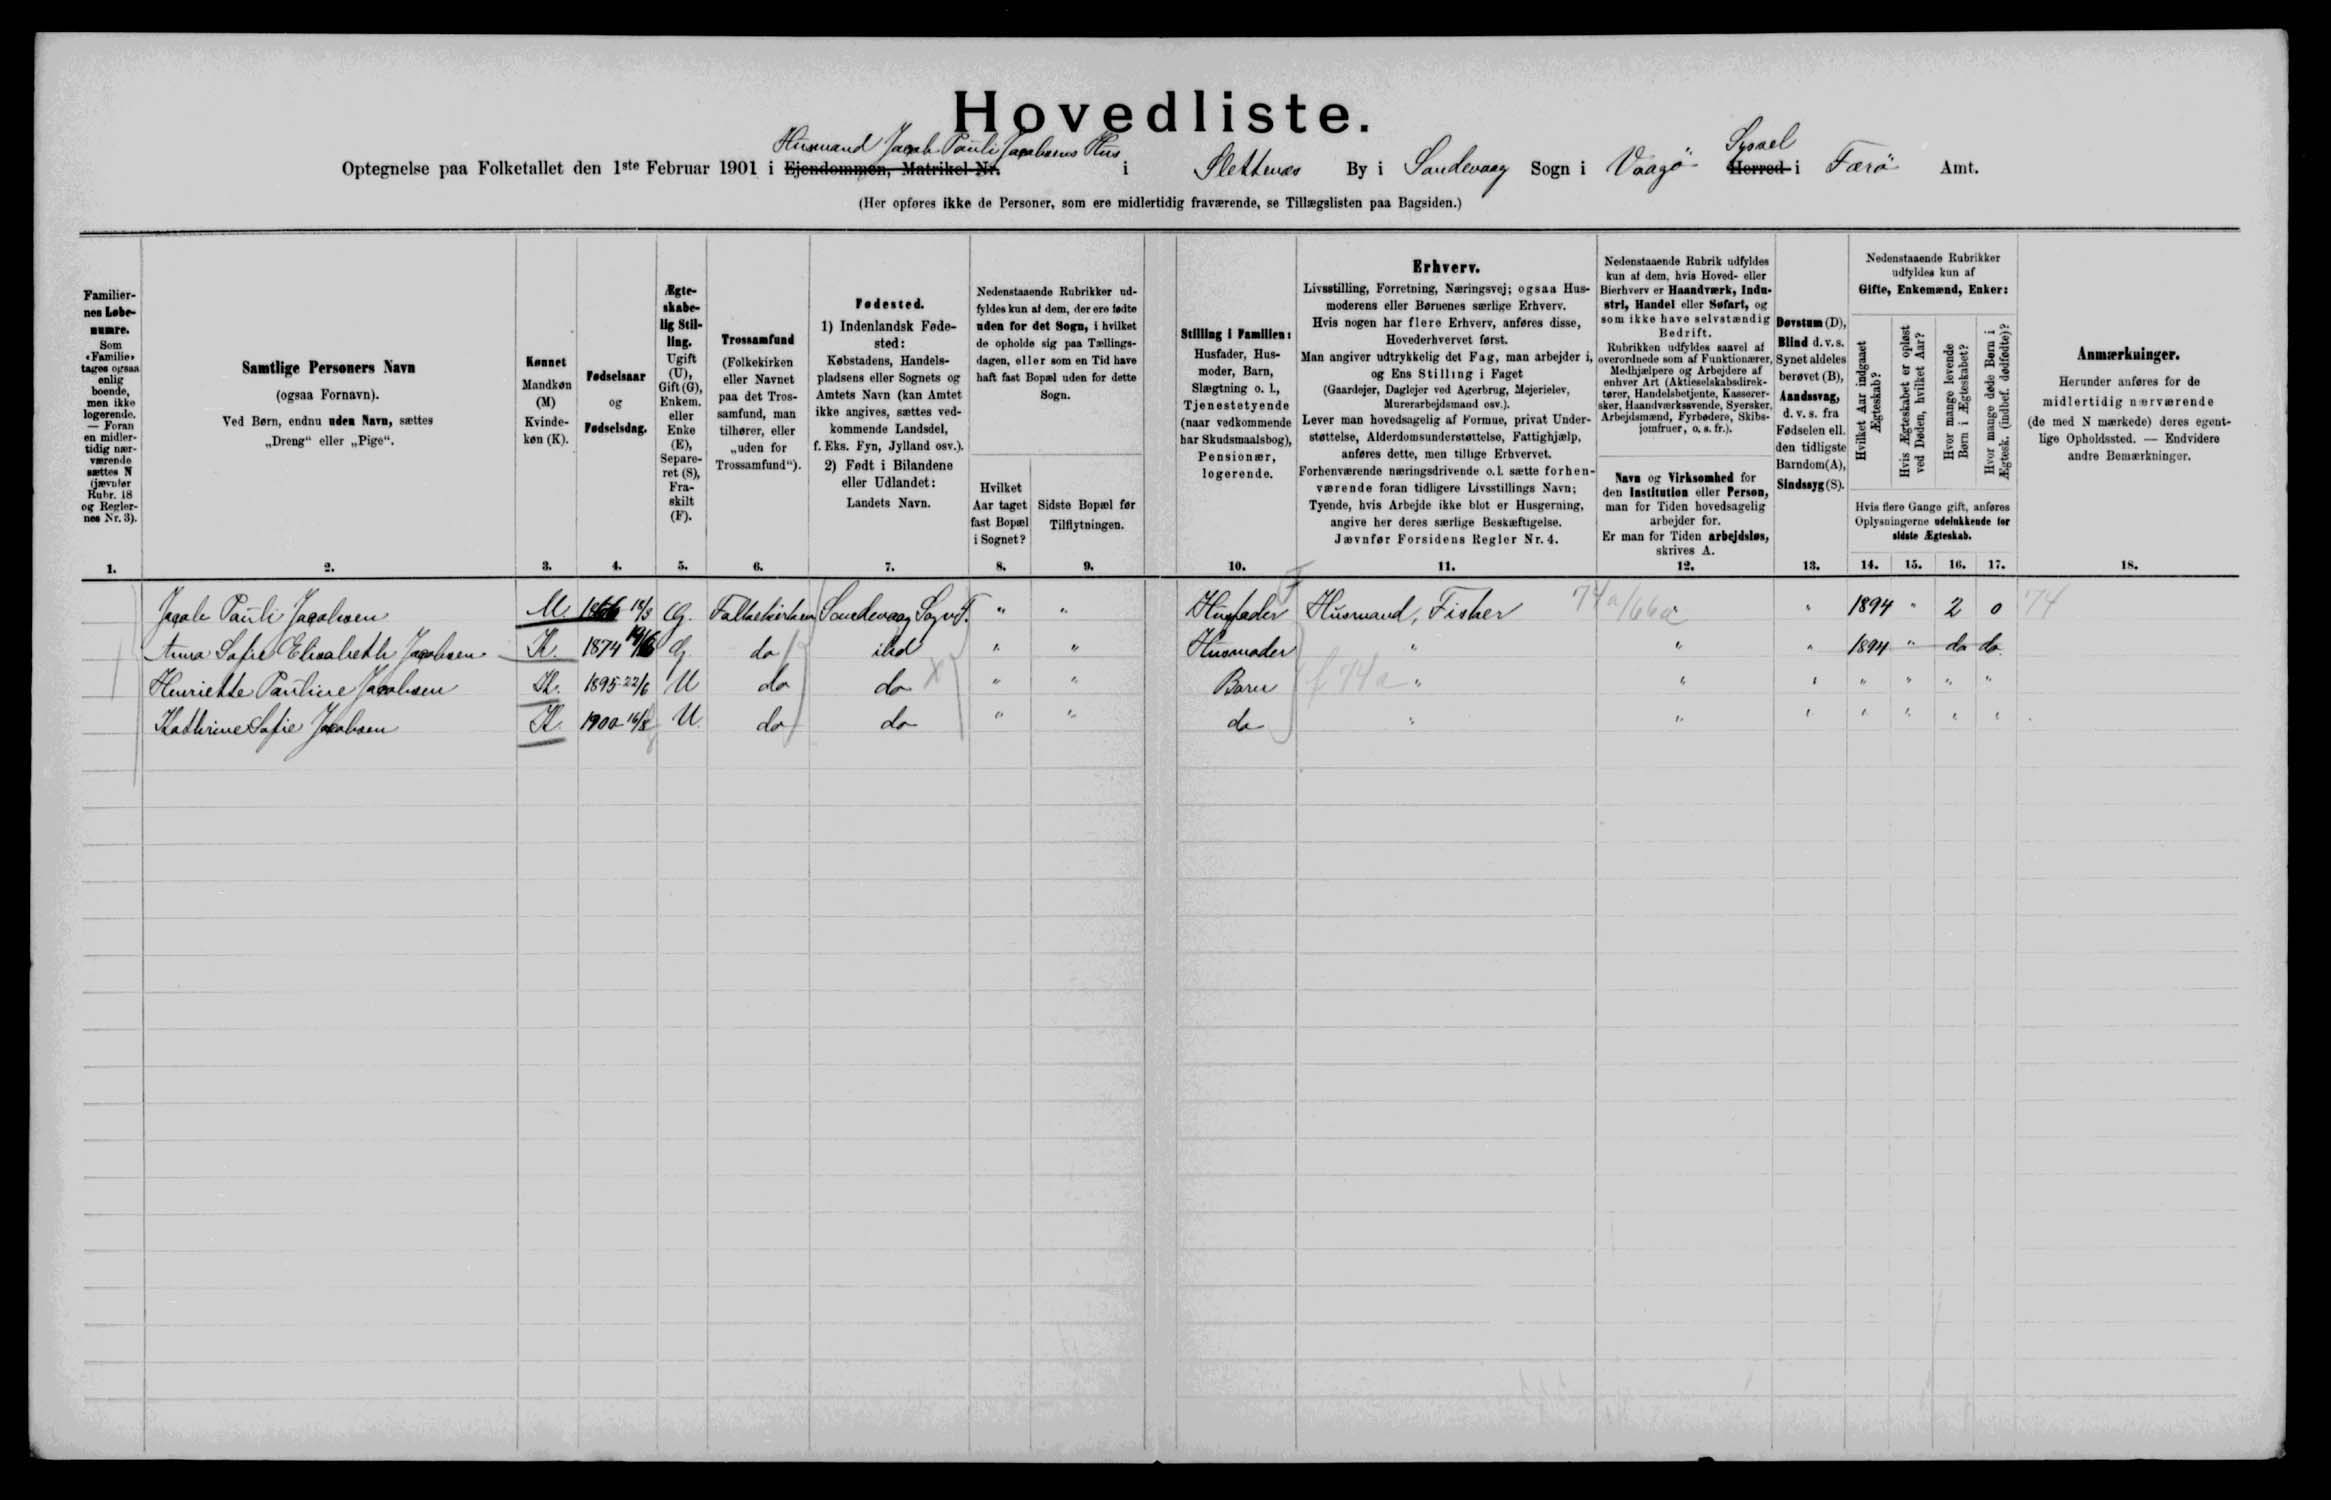 Hovedliste.
Husmand Jacob Pauli Jacobsens Hus
Syssel
Optegnelse paa Folketallet den 1ste Februar 1901 i Ejendommen, Matrikel-Nr. i Slettenæs By i Sandevaag Sogn i Vaagø Herred i Færø Amt.
(Her opføres ikke de Personer, som ere midlertidig fraværende, se Tillægslisten paa Bagsiden.)
Familier-
nes Løbe-
numre.
Som
«Familie»
tages ogsaa
enlig
boende,
men ikke
logerende.
— Foran
en midler-
tidig nær-
værende
sættes N
(jævnfør
Rubr. 18
og Regler-
nes Nr. 3).
1.
Samtlige Personers Navn
(ogsaa Fornavn).
Ved Børn, endnu uden Navn, sættes
„Dreng“ eller „Pige“.
2.
Kønnet
Mandkøn
(M)
Kvinde-
køn (K).
3.
Fødselsaar
og
Fødselsdag.
4.
Ægte-
skabe-
lig Stil-
ling.
Ugift
(U),
Gift (G),
Enkem.
eller
Enke
(E),
Separe-
ret (S),
Fra-
skilt
(F).
5.
Trossamfund
(Folkekirken
eller Navnet
paa det Tros-
samfund, man
tilhører, eller
„uden for
Trossamfund“).
6.
Fødested.
1) Indenlandsk Føde-
sted:
Købstadens, Handels-
pladsens eller Sognets og
Amtets Navn (kan Amtet
ikke angives, sættes ved-
kommende Landsdel,
f. Eks. Fyn, Jylland osv.).
2) Født i Bilandene
eller Udlandet:
Landets Navn.
7.
Nedenstaaende Rubrikker ud-
fyldes kun af dem, der ere fødte
uden for det Sogn, i hvilket
de opholde sig paa Tællings-
dagen, eller som en Tid have
haft fast Bopæl uden for dette
Sogn.
Hvilket
Aar taget
fast Bopæl
i Sognet?
8.
Sidste Bopæl før
Tilflytningen.
9.
Stilling i Familien:
Husfader, Hus-
moder, Barn,
Slægtning o. l.,
Tjenestetyende
(naar vedkommende
har Skudsmaalsbog),
Pensionær,
logerende.
10.
Erhverv.
Livsstilling, Forretning, Næringsvej; ogsaa Hus-
moderens eller Børnenes særlige Erhverv.
Hvis nogen har flere Erhverv, anføres disse,
Hovederhvervet først.
Man angiver udtrykkelig det Fag, man arbejder i,
og Ens Stilling i Faget
(Gaardejer, Daglejer ved Agerbrug, Mejerielev,
Murerarbejdsmand osv.).
Lever man hovedsagelig af Formue, privat Under-
støttelse, Alderdomsunderstøttelse, Fattighjælp,
anføres dette, men tillige Erhvervet.
Forhenværende næringsdrivende o.l. sætte forhen-
værende foran tidligere Livsstillings Navn;
Tyende, hvis Arbejde ikke blot er Husgerning,
angive her deres særlige Beskæftigelse.
Jævnfør Forsidens Regler Nr. 4.
11.
Nedenstaaende Rubrik udfyldes
kun af dem, hvis Hoved- eller
Bierhverv er Haandværk, Indu-
stri, Handel eller Søfart, og
som ikke have selvstændig
Bedrift.
Rubrikken udfyldes saavel af
overordnede som af Funktionærer,
Medhjælpere og Arbejdere af
enhver Art (Aktieselskabsdirek-
tører, Handelsbetjente, Kasserer-
sker, Haandværkssvende, Syersker,
Arbejdsmænd, Fyrbødere, Skibs-
jomfruer, o. s. fr.).
Navn og Virksomhed for
den Institution eller Person,
man for Tiden hovedsagelig
arbejder for.
Er man for Tiden arbejdsløs,
skrives A.
12.
Døvstum (D),
Blind d. v. s.
Synet aldeles
berøvet (B),
Aandssvag,
d. v. s. fra
Fødselen ell.
den tidligste
Barndom (A),
Sindssyg (S).
13.
Nedenstaaende Rubrikker
udfyldes kun af
Gifte, Enkemænd, Enker:
Hvilket Aar indgaaet
Ægteskab?
Hvis Ægteskabet er opløst
ved Døden, hvilket Aar?
Hvor mange levende
Børn i Ægteskabet?
Hvor mange døde Børn i
Ægtesk. (indbef. dødfødte)?
Hvis flere Gange gift, anføres
Oplysningerne udelukkende for
sidste Ægteskab.
14. 15. 16. 17.
Anmærkninger.
Herunder anføres for de
midlertidig nærværende
(de med N mærkede) deres egent-
lige Opholdssted. — Endvidere
andre Bemærkninger.
18.
Jacob Pauli Jacobsen M. 1866 18/3 G. Folkekirken Sandevaag Sogn F. " " Husfader Husmand, Fisker 74a/66a " " 1894 " 2 0 74
Anna Sofie Elisabeth Jacobsen K. 1874 19/6 G. do ibd " " Husmoder " " " 1894 " do do
Henriette Pauline Jacobsen K. 1895 22/6 U do do x " " Barn f 74a " " " " " " "
Kathrine Sofie Jacobsen K. 1900 16/8 U. do do " " do " " " " " " "